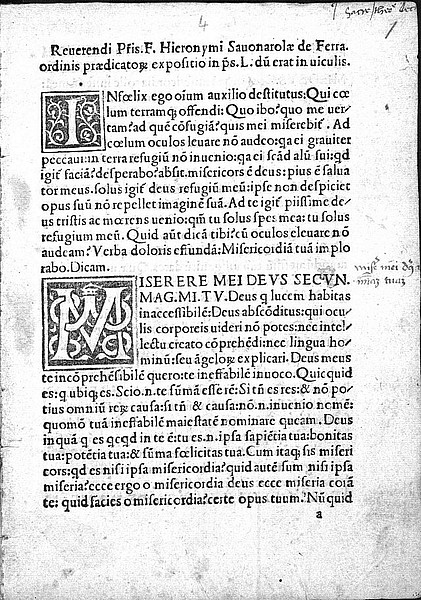 4
Reuerendi Pr̃is.F. Hieronymi Sauonarolæ de Ferra.
ordinis prædicatoꝝ expositio in p̃s.L. dũ erat in uiculis.
INfœlix ego oĩum auxilio destitutus: Qui cœ
lum terramqꝫ offendi: Quo ibo? quo me uer
tam? ad quẽ cõfugiã? quis mei miserebit̃. Ad
cœlum oculos leuare nõ audeo: qa ei grauiter
peccaui: in terra refugiũ nõ inuenio: qa ei scãdalũ sui: qd
igit̃ faciã? desperabo? absit. misericors ẽ deus: pius ẽ salua
tor meus. solus igit̃ deus refugiũ meũ: ipse non despiciet
opus suũ nõ repellet imaginẽ suã. Ad te igit̃ piissime de/
us tristis ac mœrens uenio: qm̃ tu solus spes mea: tu solus
refugium meũ. Quid aũt dicã tibi? cũ oculos eleuare nõ
audeam? Verba doloris effundã: Misericordiã tuã implo
rabo. Dicam.
MISERERE MEI DEVS SECVN.
MAG.MI.TV. Deus q lucem habitas
inaccessibilẽ: Deus abscõditus: qui ocu
lis corporeis uideri nõ potes: nec intel/
lectu creato cõprehẽdi: nec lingua ho/
minũ: seu ãgeloꝝ explicari. Deus meus
te incõprehẽsibilẽ quero: te ineffabilẽ inuoco. Quicquid
es: q ubiqꝫ es. Scio.n. te sũmã esse rẽ: Si tñ es res: & nõ po/
tius omniũ reꝝ causa: si tñ & causa: nõ.n. inuenio nomẽ:
quomõ tuã ineffabilẽ maiestatẽ nominare queam. Deus
inquã q es qcqd in te ẽ: tu es.n. ipsa sapiẽtia tua: bonitas
tua: potẽtia tua: & sũma fœlicitas tua. Cum itaqꝫ sis miseri
cors: qd es nisi ipsa misericordia? quid autẽ sum nisi ipsa
miseria? ecce ergo o misericordia deus ecce miseria corã
te: quid facies o misericordia? certe opus tuum. Nũquid
a